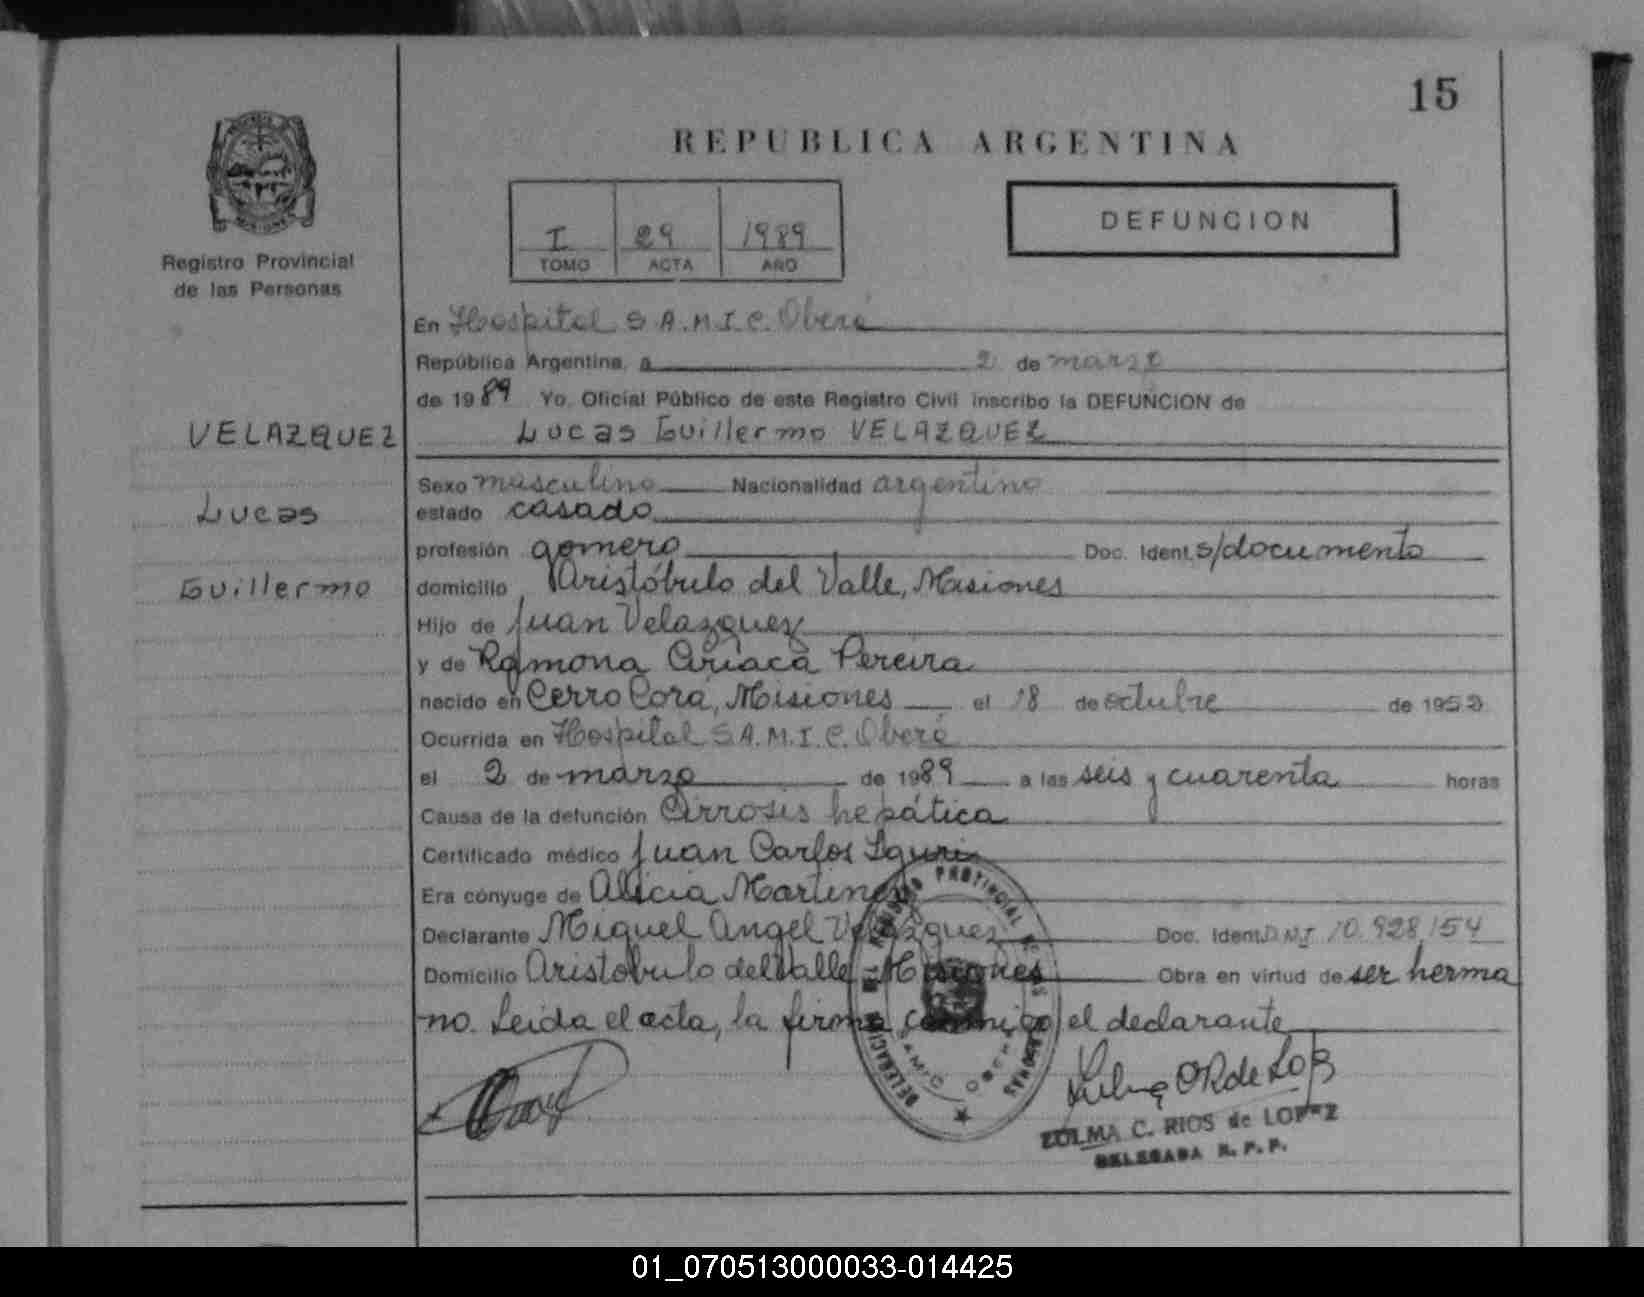 15
REPUBLICA ARGENTINA
I 29 1989
TOMO ACTA AÑO
DEFUNCION
Registro Provincial
de las Personas
En Hospital S.A.M.I.C. Oberá
República Argentina, a 2 de marzo
de 1989 Yo, Oficial Público de este Registro Civil inscribo la DEFUNCION de
VELAZQUEZ
Lucas Guillermo VELAZQUEZ
Lucas
Guillermo
Sexo masculino Nacionalidad argentino
estado casado
profesión gomero Doc. Ident. s/documento
domicilio Aristóbulo del Valle, Misiones
Hijo de Juan Velazquez
y de Ramona Ciriaca Pereira
nacido en Cerro Corá, Misiones el 18 de octubre de 195
Ocurrida en Hospital S.A.M.I.C. Oberá
el 2 de marzo de 1989 a las seis y cuarenta horas
Causa de la defunción Cirrosis hepática
Certificado médico Juan Carlos
Era cónyuge de Alicia Martinez
Declarante Miguel Angel Velazquez Doc. Ident. D.N.I. 10.928.154
Domicilio Aristobulo del Valle - Misiones Obra en virtud de ser herma
no. Leida el acta, la firma conmigo el declarante
DELEGACION REGISTRO PROVINCIAL DE LAS PERSONAS
SAMIC OBERA
ZULMA C. RIOS de LOPEZ
DELEGADA R. P. P.
01_070513000033-014425